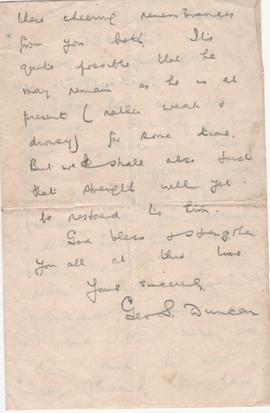 these cheering remembrances
from you both. It is
quite possible that he
may remain as he is at
present (rather weak &
drowsy) for some time.
But we shall also trust
that strength will yet
be restored to him.
God bless & strengthen
you all at this time.
Yours sincerely,
Geo S. Duncan